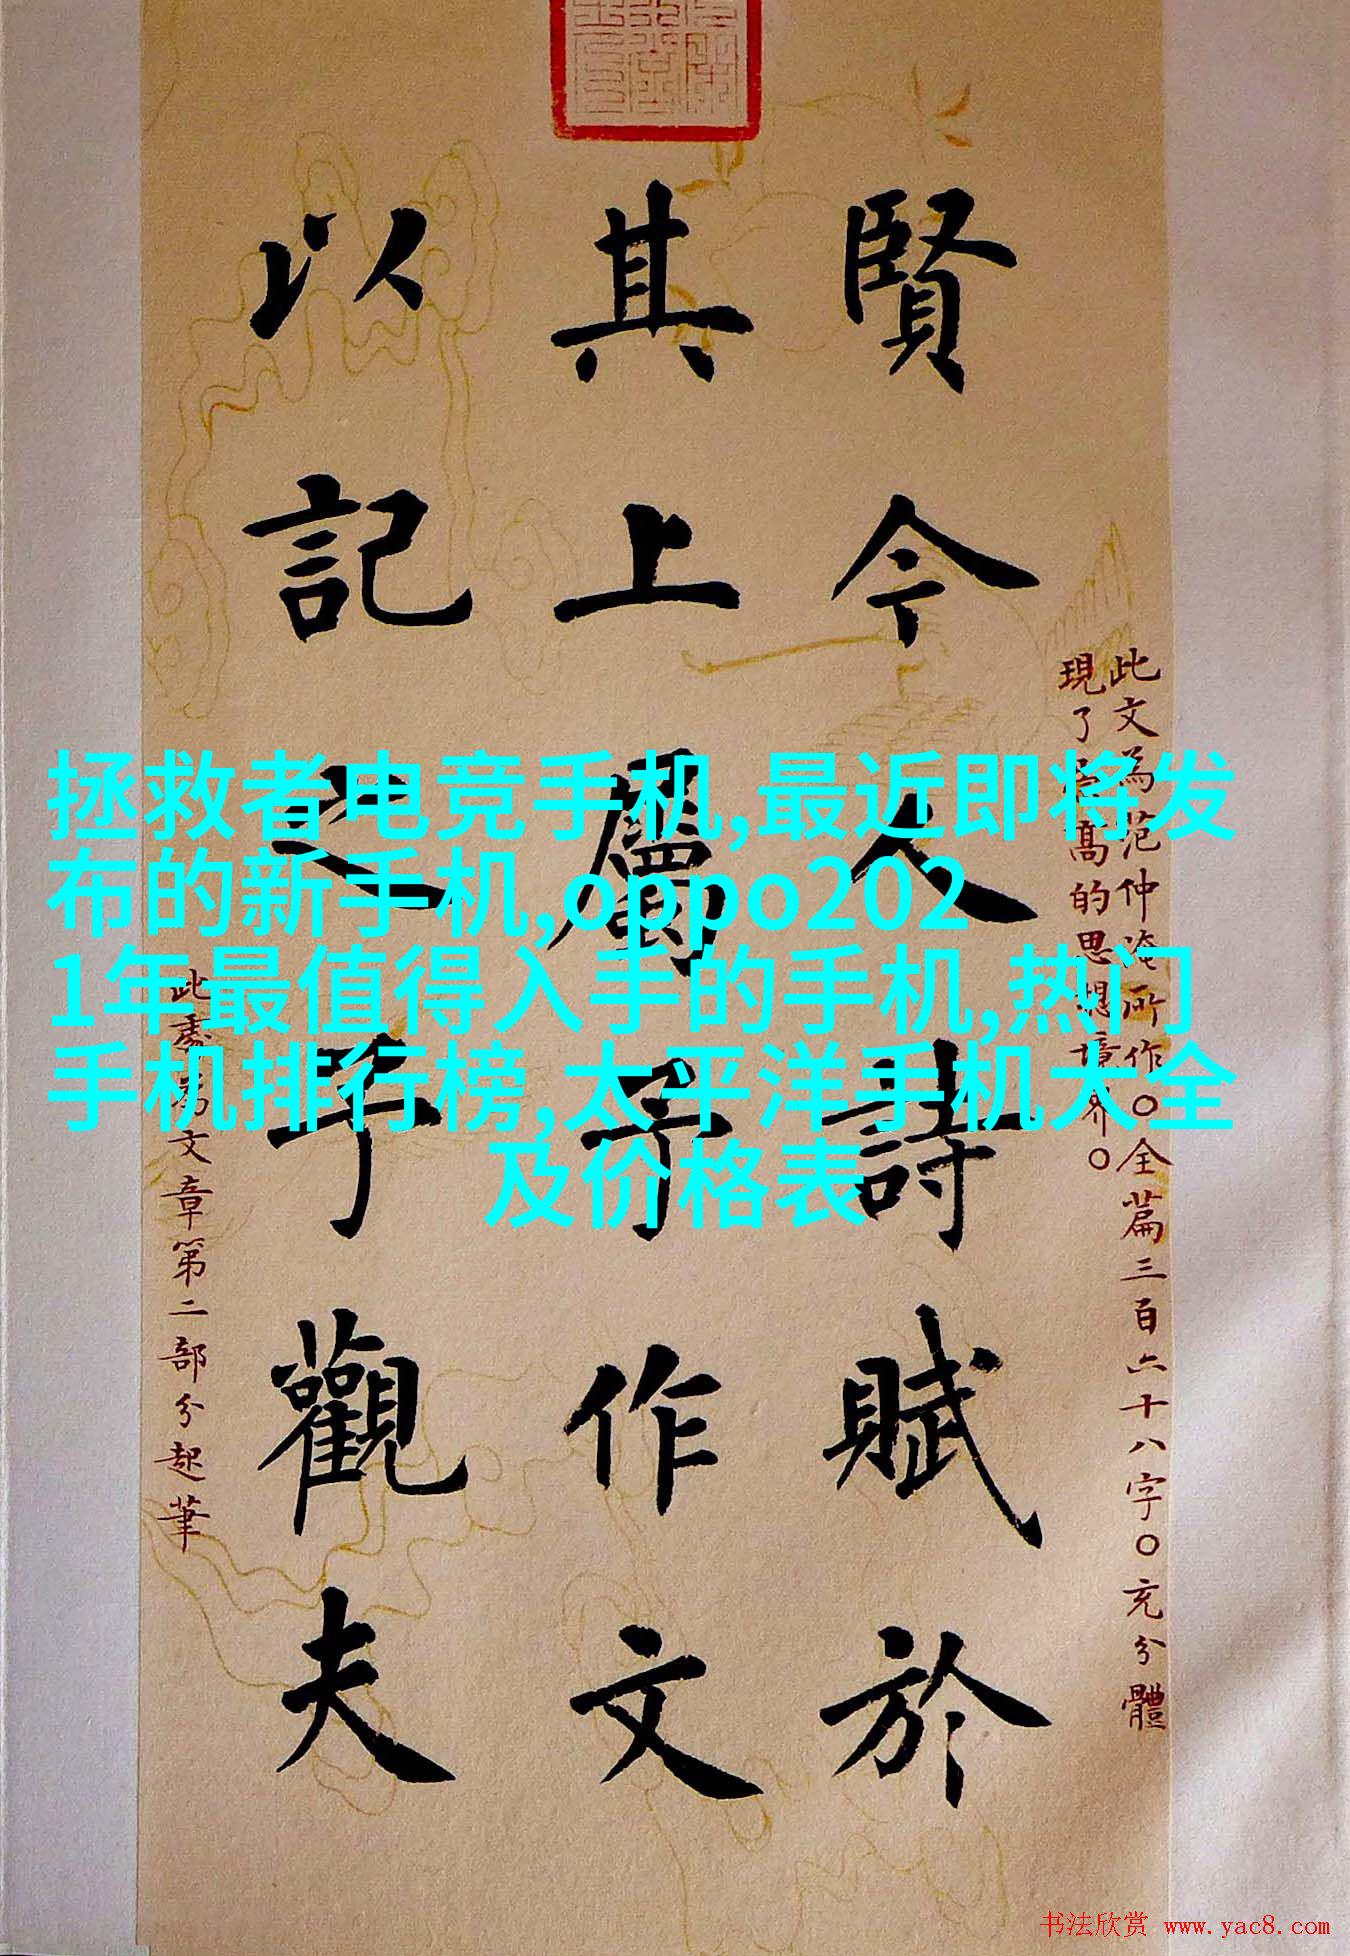 賢今人詩賦於
其上屬予作文
以記之予觀夫
此文為范仲淹所作○全篇三百六十八字○充分體
現了崇高的思想境界○
此處為文章第二部分起筆
拯救者电竞手机,最近即将发
布的新手机,oppo202
1年最值得入手的手机,热门
手机排行榜,太平洋手机大全
及价格表
书法欣赏 www.yac8.com